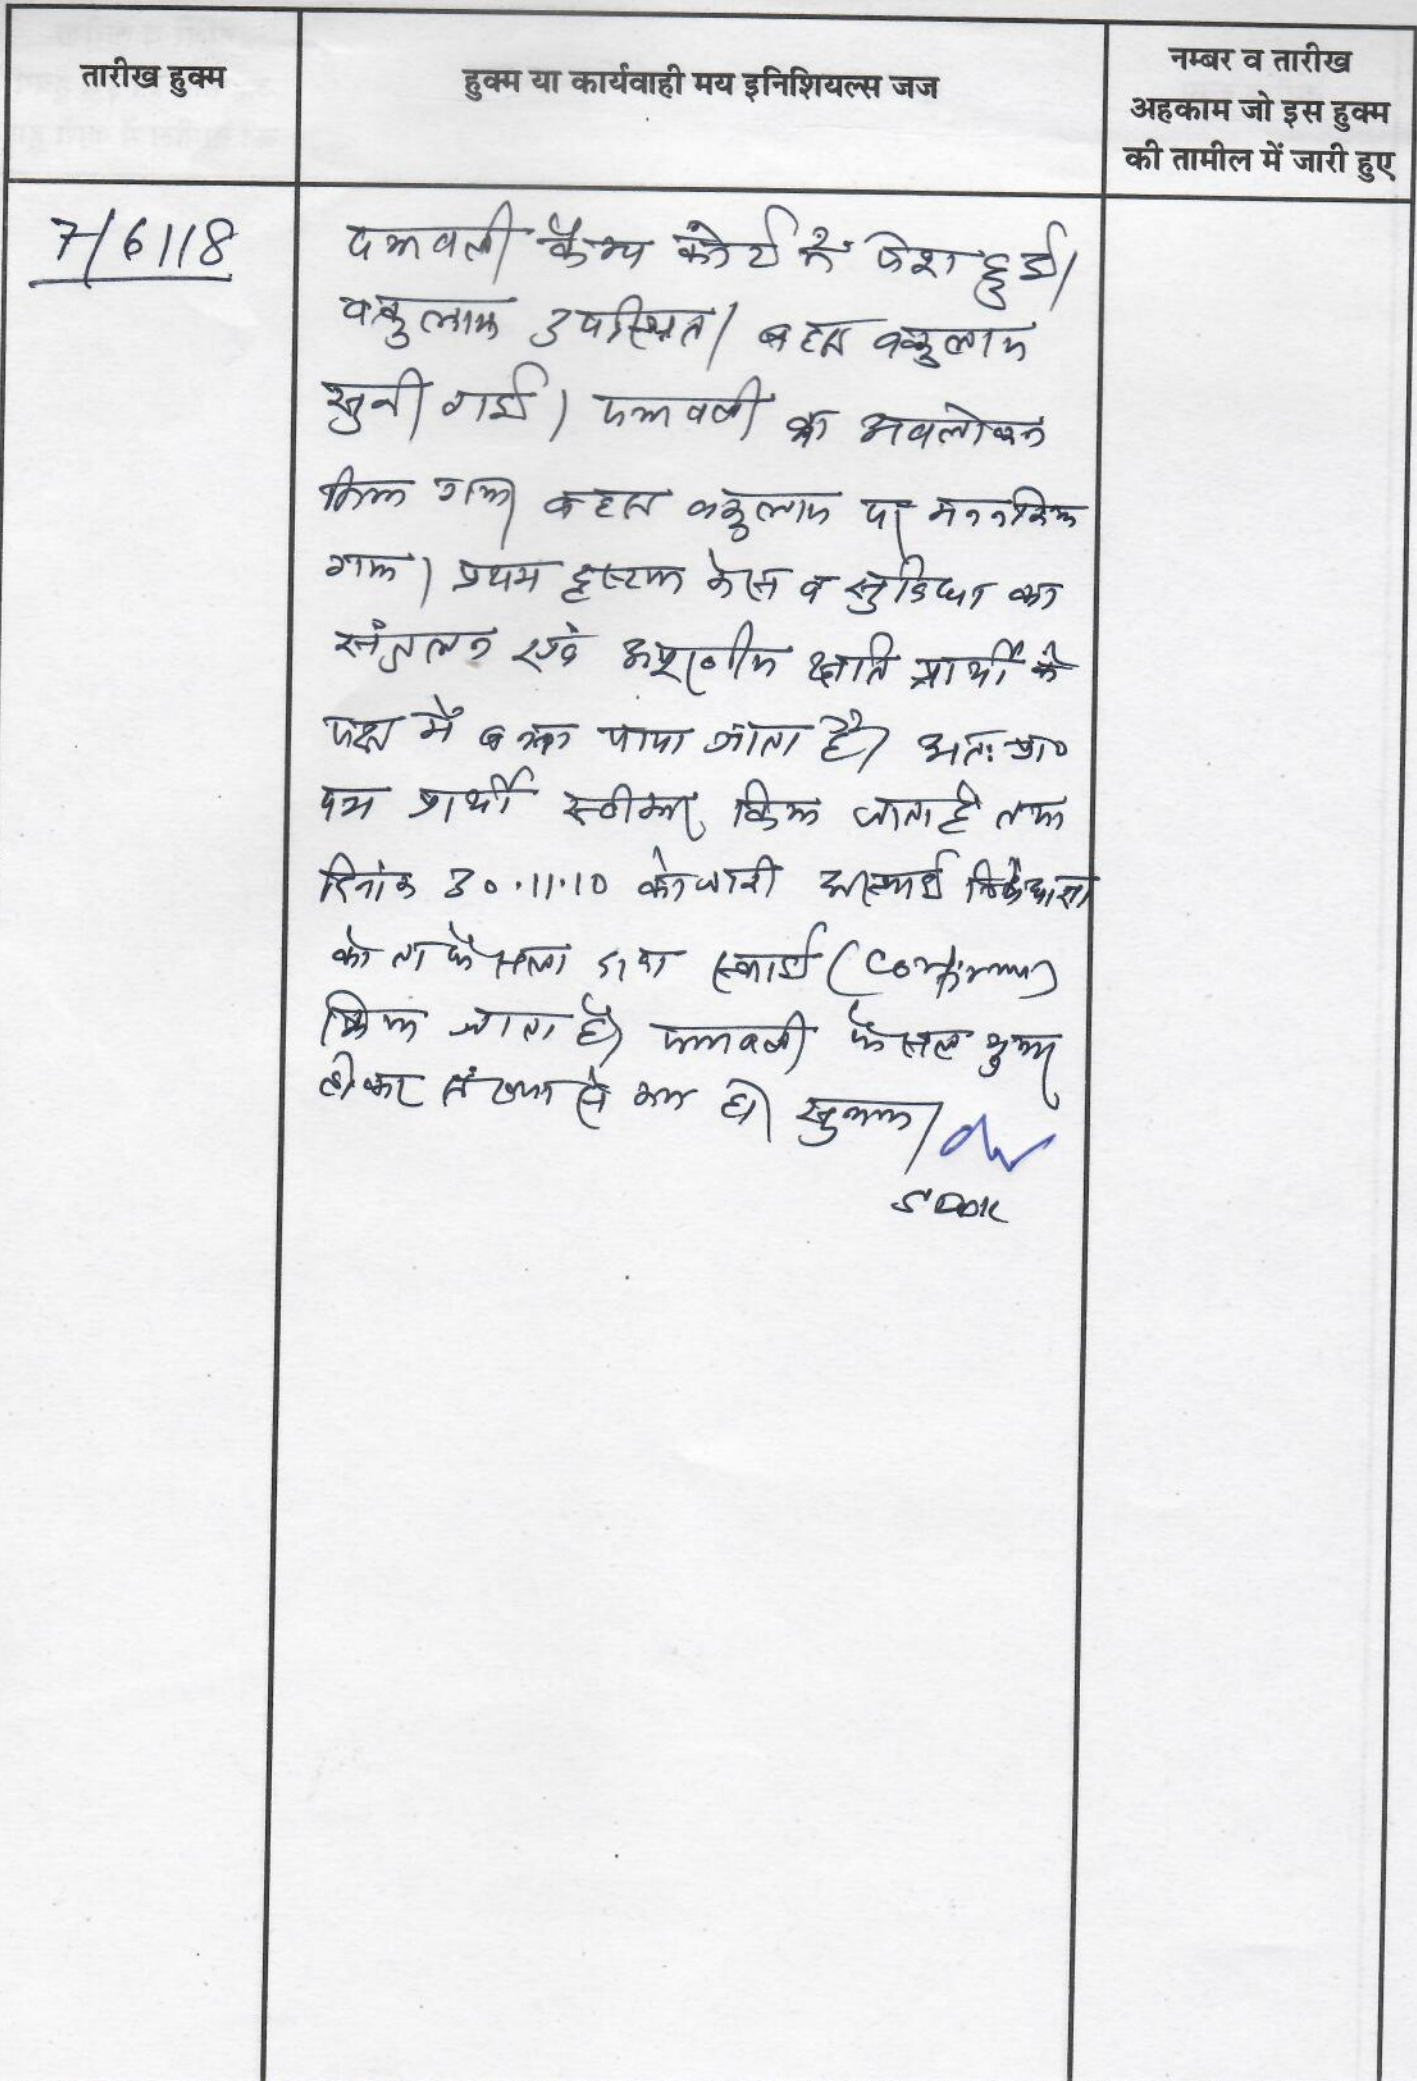 तारीख हुक्म
हुक्म या कार्यवाही मय इनिशियल्स जज
नम्बर व तारीख
अहकाम जो इस हुक्म
की तामील में जारी हुए
7/6/18
पत्रावली कैम्प कोर्ट में पेश हुई।
वकुलाय उपस्थित। बहस वकुलाय
सुनी गई। पत्रावली का अवलोकन
किया गया। बहस वकुलाय पर मनन किया
गया। प्रथम दृष्टया केस व सुविधा का
संतुलन एवं अपूरणीय क्षति प्रार्थी के
पक्ष में बनना पाया जाता है। अतः प्रा०
पत्र प्रार्थी स्वीकार किया जाता है तथा
दिनांक 30.11.10 को जारी अस्थाई निषेधाज्ञा
को ता फैसला स्थाई (Confirm)
किया जाता है। पत्रावली फैसल शुमार
होकर संख्या से कम हो।